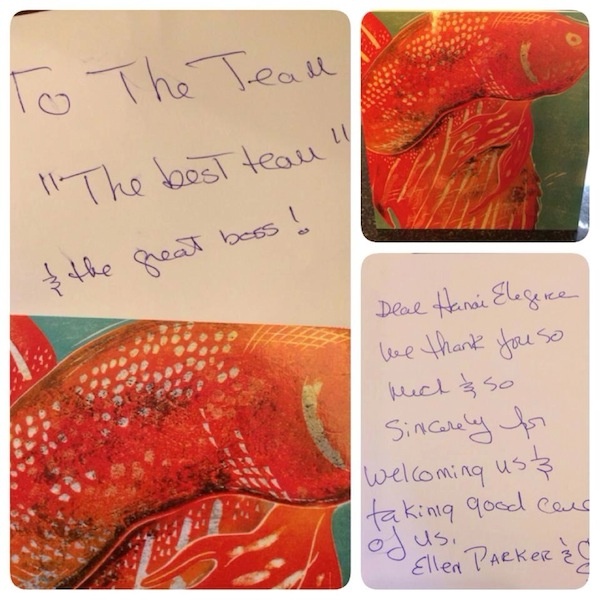 To The Team
"The best team"
& the great boss!
Dear Hanoi Elegance
We thank you so
much & so
Sincerely for
welcoming us &
taking good care
of us.
Ellen PARKER &